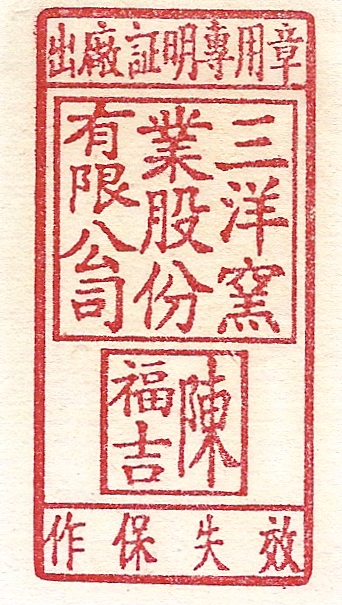 出廠証明專用章
三洋窯
業股份
有限公司
陳
福吉
作保失效